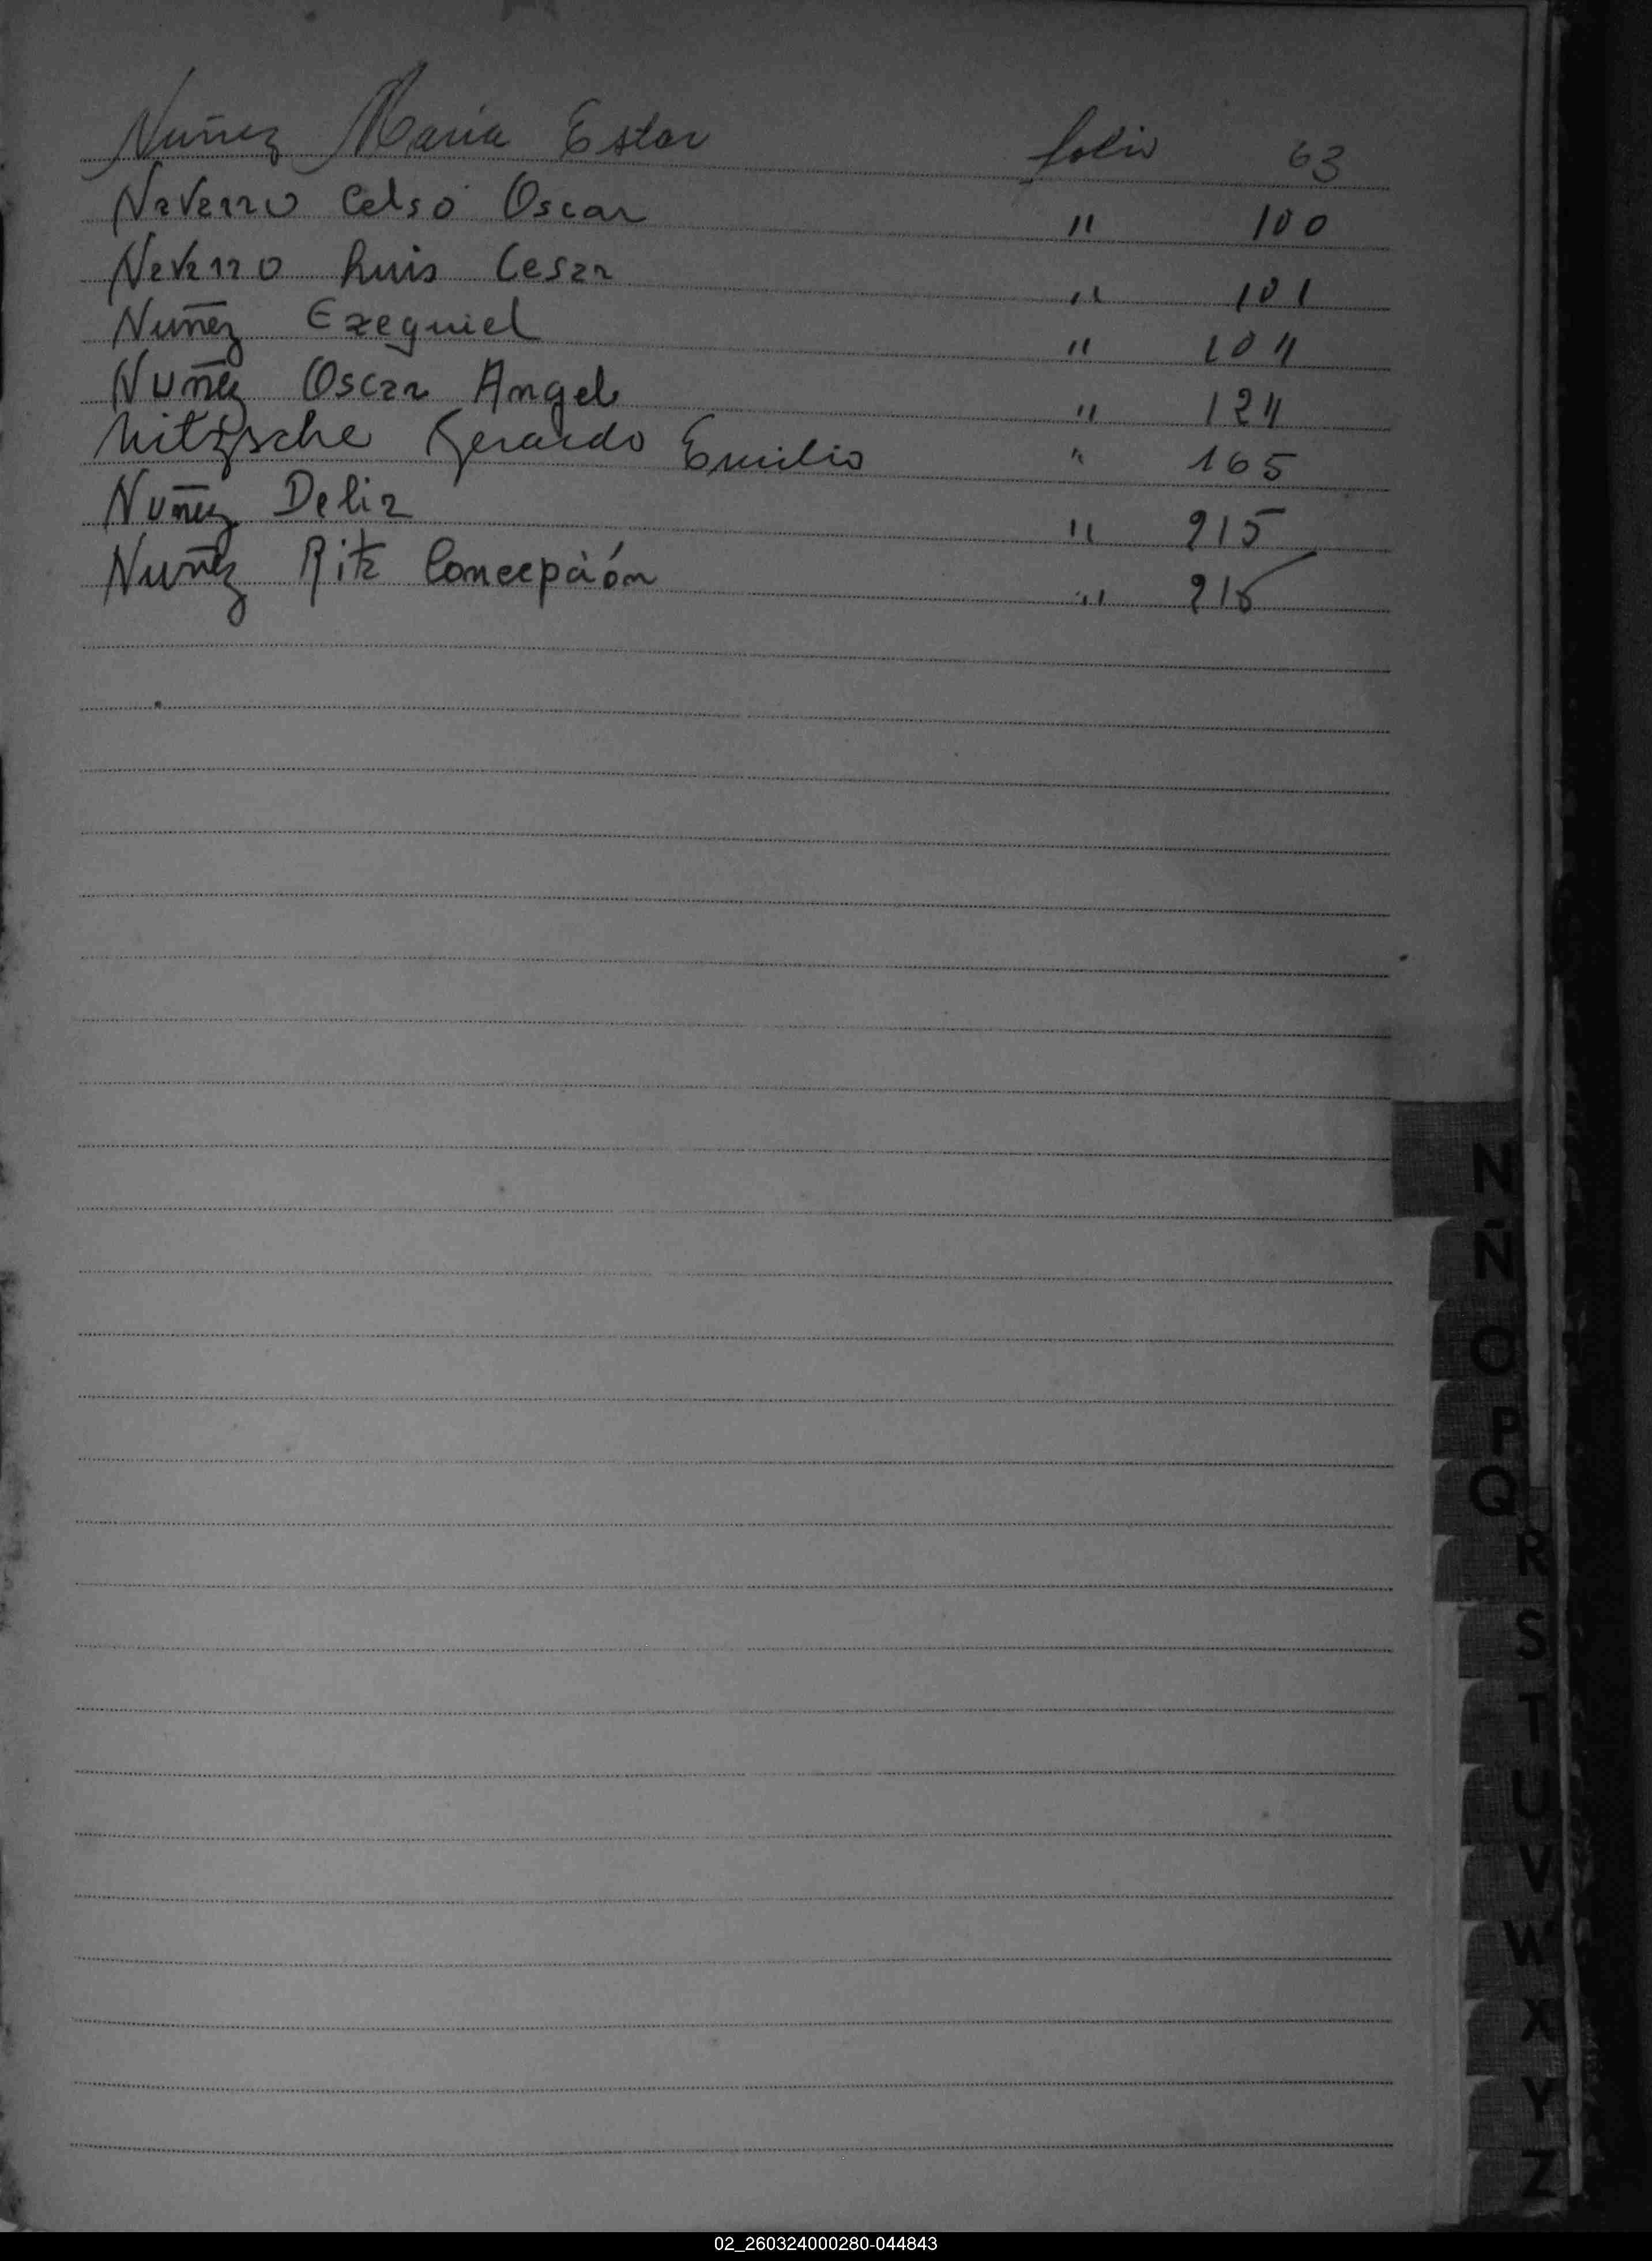 Nuñez Maria Ester folio 63
Navarro Celso Oscar " 100
Navarro Luis Cesar " 101
Nuñez Ezequiel " 104
Nuñez Oscar Angel " 124
Nitzsche Gerardo Emilio " 165
Nuñez Delia " 215
Nuñez Rita Concepción "
N
Ñ
O
P
Q
R
S
T
U
V
W
X
Y
Z
02_260324000280-044843